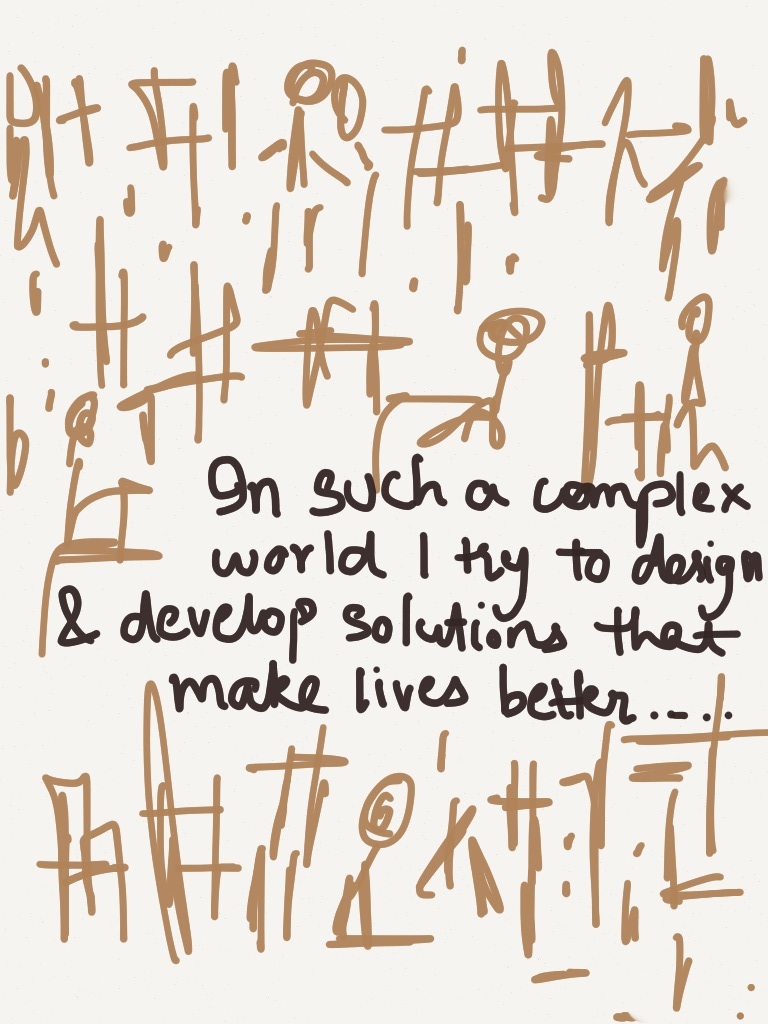 In such a complex
world I try to design
& develop solutions that
make lives better.....